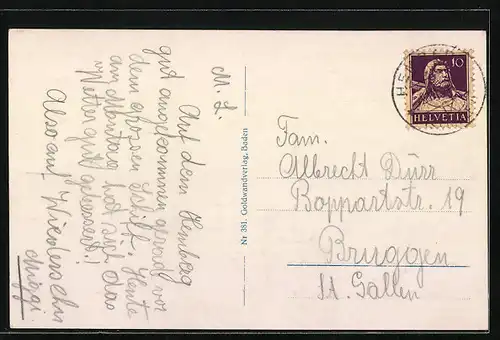 M. L.
Auf dem Hemberg
gut angekommen grad vor
dem grossen Schiff. Heute
am Montag hat sich das
Wetter gut gebessert!
Also auf Wiedersehn
Nr 381. Goldwandverlag, Baden
10
HELVETIA
HE
Fam.
Albrecht Dürr
Boppartstr. 19
Bruggen
St. Gallen